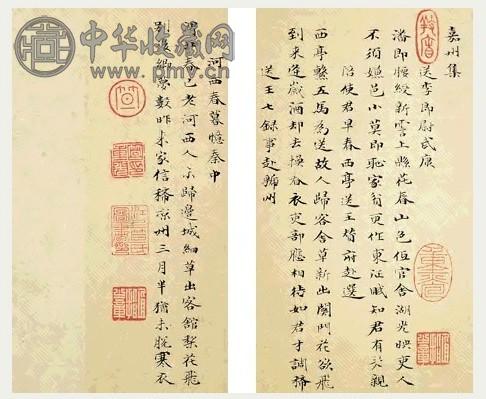 嘉州集
送李郎尉武康
潘郎腰綬新霅上縣花春山色低官舍湖光映吏人
不須嫌邑小莫即恥家貧更作東征賦知君有老親
陪使君早春西亭送王贊府赴選
西亭繫五馬為送故人歸客舍草新出關門花欲飛
到來逢歲酒却去換春衣吏部應相待如君才調稀
送王七録事赴虢州
河西春暮憶秦中
渭北春已老河西人未歸邊城細草出客舘梨花飛
別後鄉夢數昨来家信稀凉州三月半猶未脫寒衣
中华收藏网
www.pmy.cn